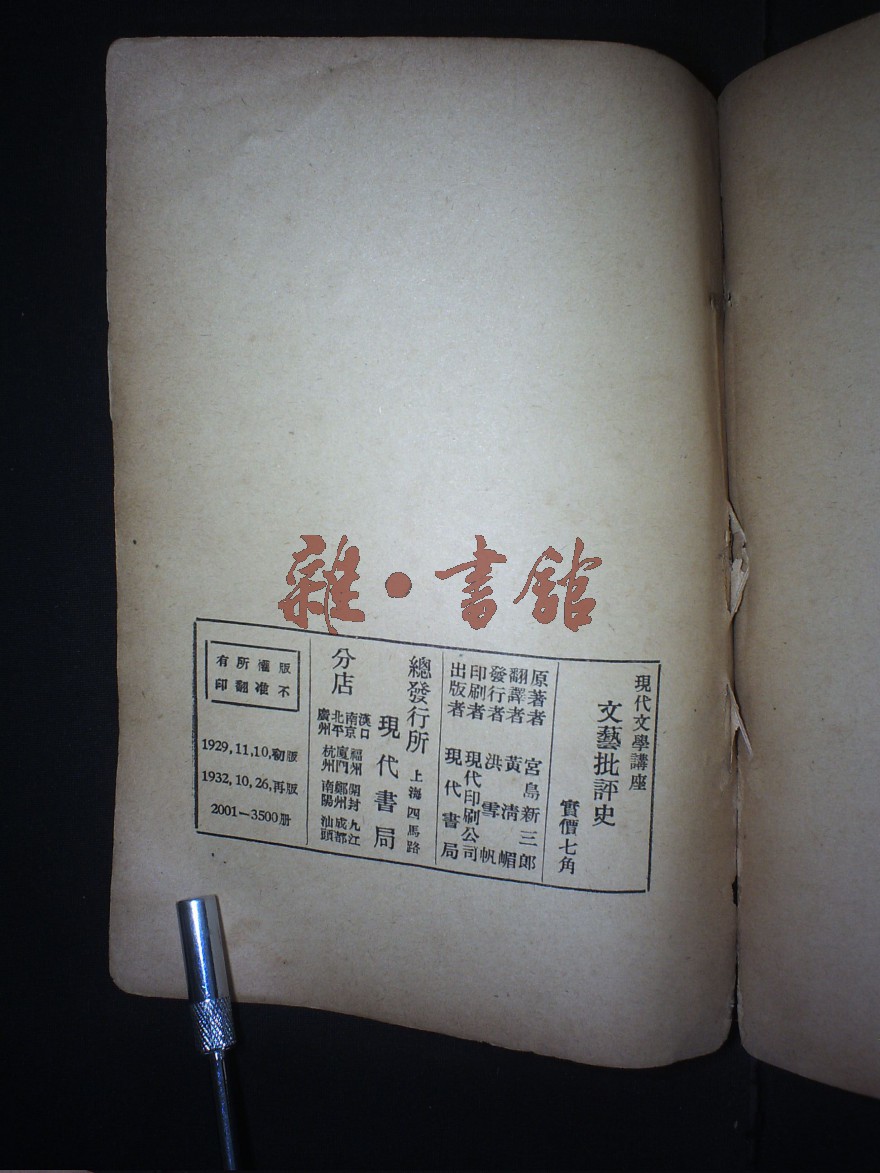 雜·書館
現代文學講座
文藝批評史
實價七角
原著者 宮島新三郎
翻譯者 黃清嵋
發行者 洪雪帆
印刷者 現代印刷公司
出版者 現代書局
總發行所 上海四馬路
現代書局
分店
漢口 福州 開封 九江
南京 廈門 鄭州 成都
北平 杭州 南陽 汕頭
廣州
版權所有
不准翻印
1929,11,10,初版
1932,10,26,再版
2001—3500册